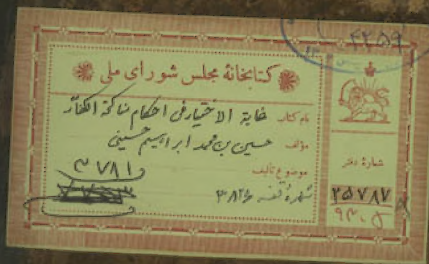 ۴۲۵۹
کتابخانهٔ مجلس شورای ملی
نام کتاب غایة الاختیار فی احکام مناکة الکفار
مؤلف حسین بن محمد ابراهیم حسینی
موضوع تألیف
۳۷۸۱
شمارهٔ قفسه ۳۸۲۶
شمارهٔ دفتر
۲۵۷۸۷